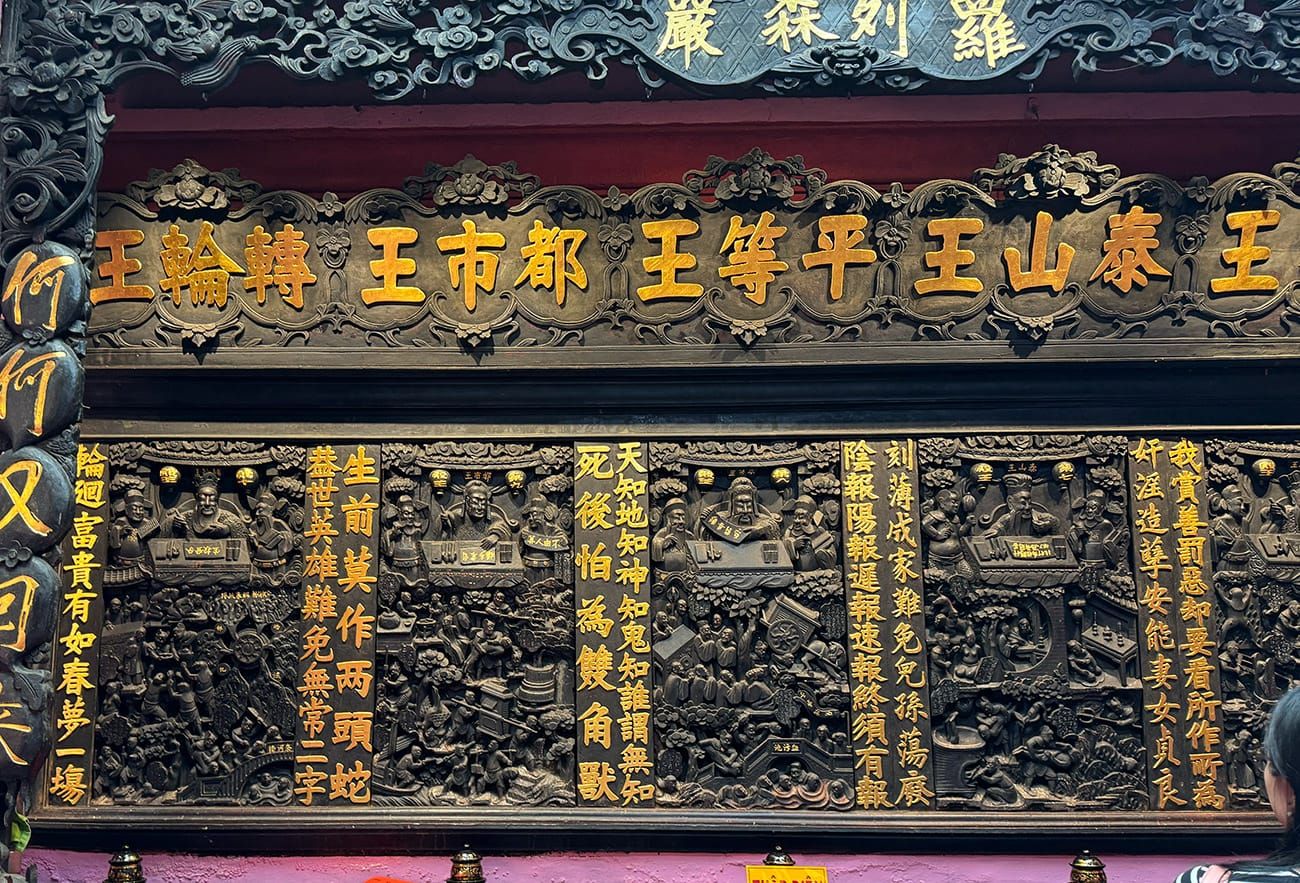 羅列森嚴
王
泰山王
平等王
都市王
轉輪王
我賞善罰惡却要看所作所為
奸淫造孽安能妻女貞良
泰山王
刻薄成家難免兒孫蕩廢
陰報陽報遲報速報終須有報
血汚池
天知地知神知鬼知誰謂無知
死後怕為雙角獸
生前莫作两頭蛇
葢世英雄難免無常二字
輪廻富貴有如春夢一塲
何何又回
THẬP ĐIỆN